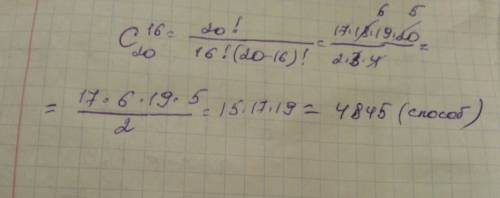 C₂₀¹⁶ = 20! / 16!(20-16)! = 17·18·19·20 / 2·3·4 = 6 5
= 17·6·19·5 / 2 = 15·17·19 = 4845 (способ)